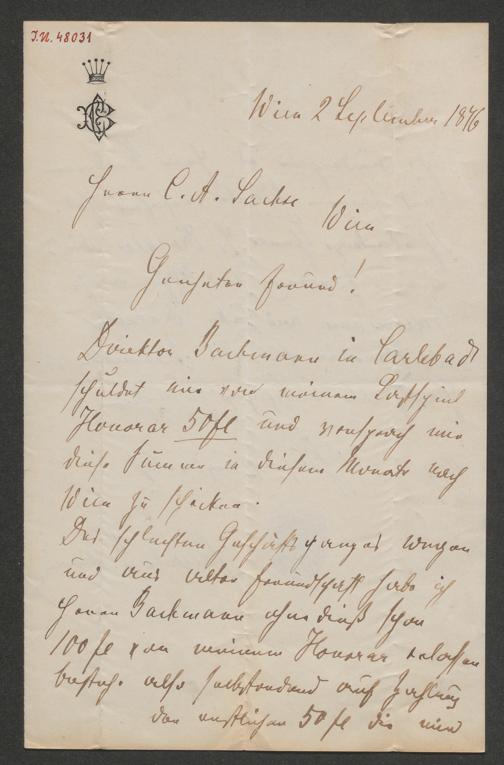 I.N. 48031
Wien 2 September 1876
Herrn C. A. Sachse
Wien
Geehrter Freund!
Direktor Bachmann in Carlsbad
schuldet mir von meinem Gastspiel
Honorar 50 fl und versprach mir
diese Summe in diesem Monate nach
Wien zu schicken.
Des schlechten Geschäftsganges wegen
und aus alter Freundschaft habe ich
Herrn Bachmann ohnedieß schon
100 fl von meinem Honorar erlassen
bestehe also selbstredend auf Zahlung
der restlichen 50 fl die mir